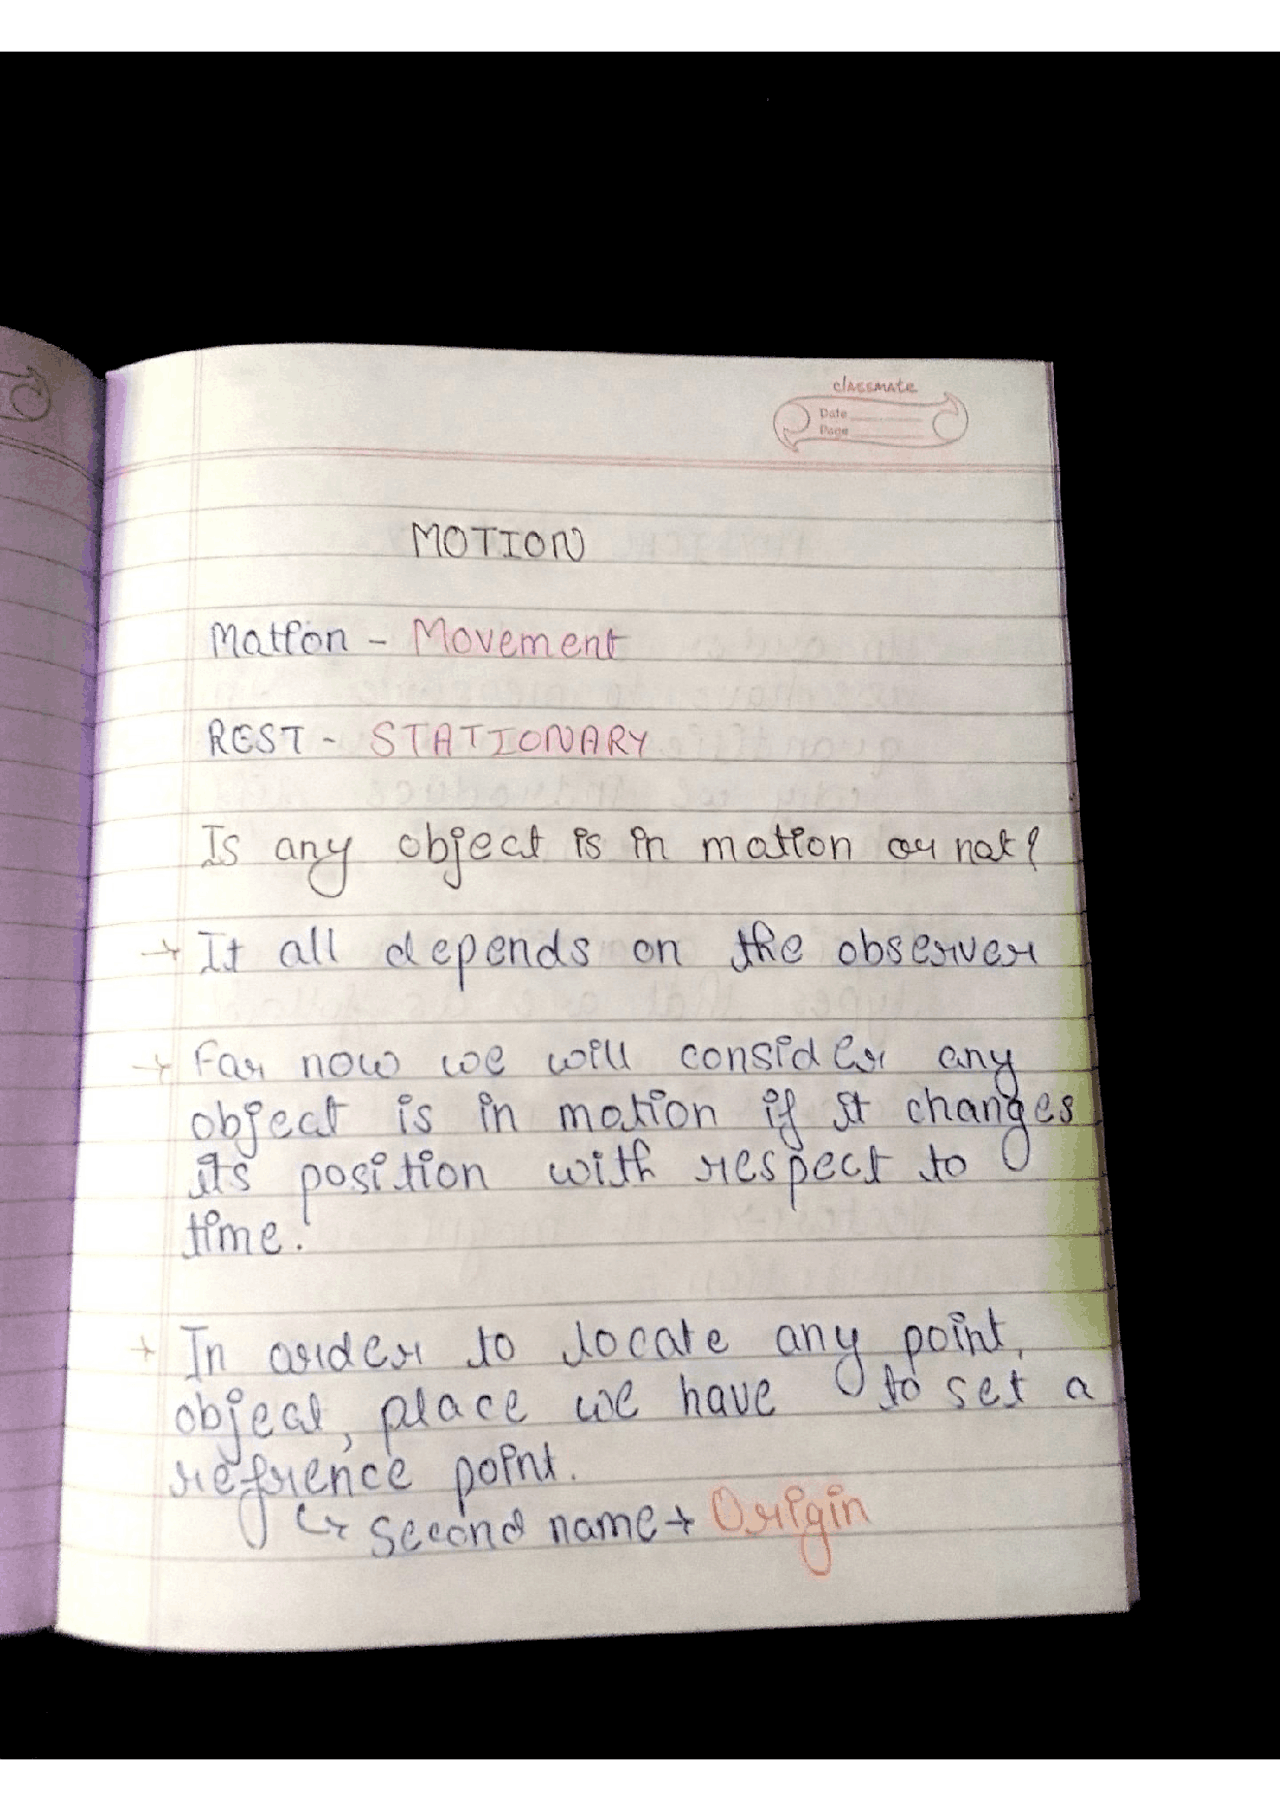 classmate
Date
Page
MOTION
Motion - Movement
REST - STATIONARY
Is any object is in motion or not?
→ It all depends on the observer
→ For now we will consider any
object is in motion if it changes
its position with respect to
time.
→ In order to locate any point,
object, place we have to set a
refrence point.
↳ Second name → Origin